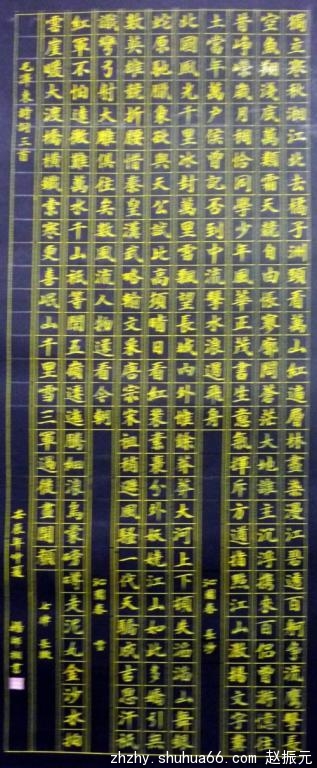 獨立寒秋湘江北去橘子洲頭看萬山紅遍層林盡染漫江碧透百舸爭流鷹擊長
空魚翔淺底萬類霜天競自由悵寥廓問蒼茫大地誰主沉浮攜來百侶曾游憶往
昔崢嶸歲月稠恰同學少年風華正茂書生意氣揮斥方遒指點江山激揚文字糞
土當年萬戶侯曾記否到中流擊水浪遏飛舟 沁園春 長沙
北國風光千里冰封萬里雪飄望長城內外惟餘莽莽大河上下頓失滔滔山舞銀
蛇原馳臘象欲與天公試比高須晴日看紅裝素裹分外妖嬈江山如此多嬌引無
數英雄競折腰惜秦皇漢武略輸文采唐宗宋祖稍遜風騷一代天驕成吉思汗祇
識彎弓射大雕俱往矣數風流人物還看今朝 沁園春 雪
紅軍不怕遠征難萬水千山祇等閒五嶺逶迤騰細浪烏蒙磅礴走泥丸金沙水拍
雲崖暖大渡橋橫鐵索寒更喜岷山千里雪三軍過後盡開顏 七律 長征
毛澤東詩詞三首 壬辰年仲夏 書
zhzhy.shuhua66.com 赵振元